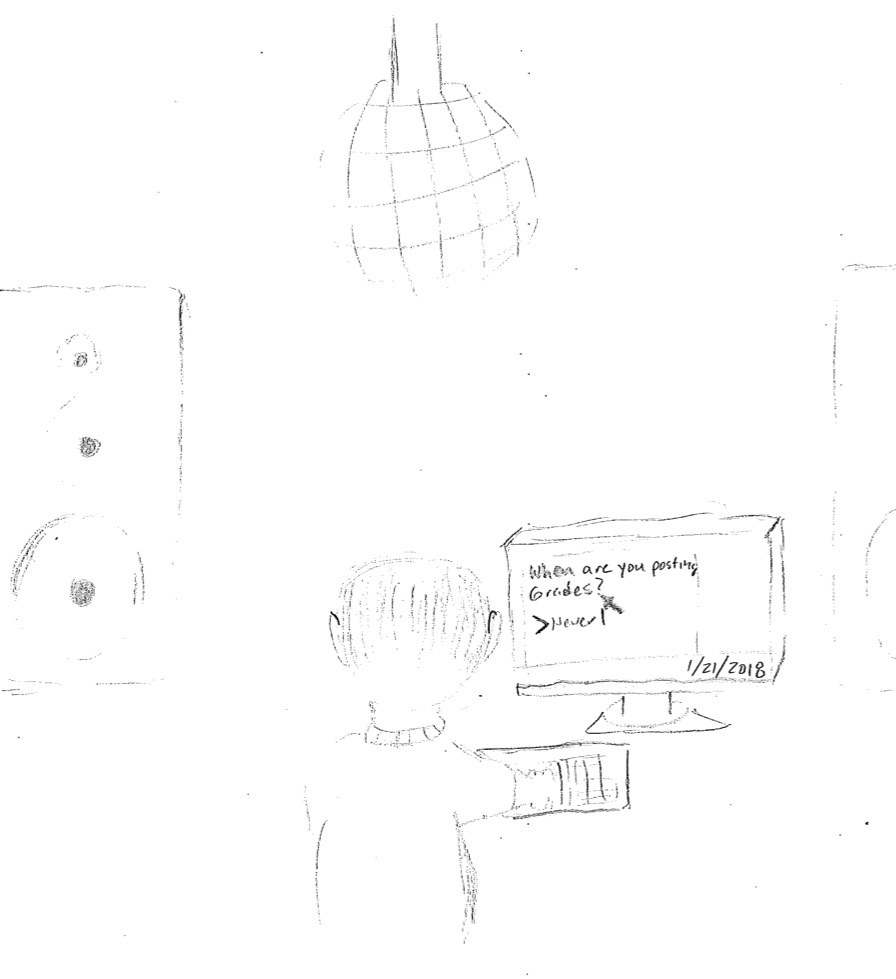 When are you posting
Grades?
>Never
1/21/2018